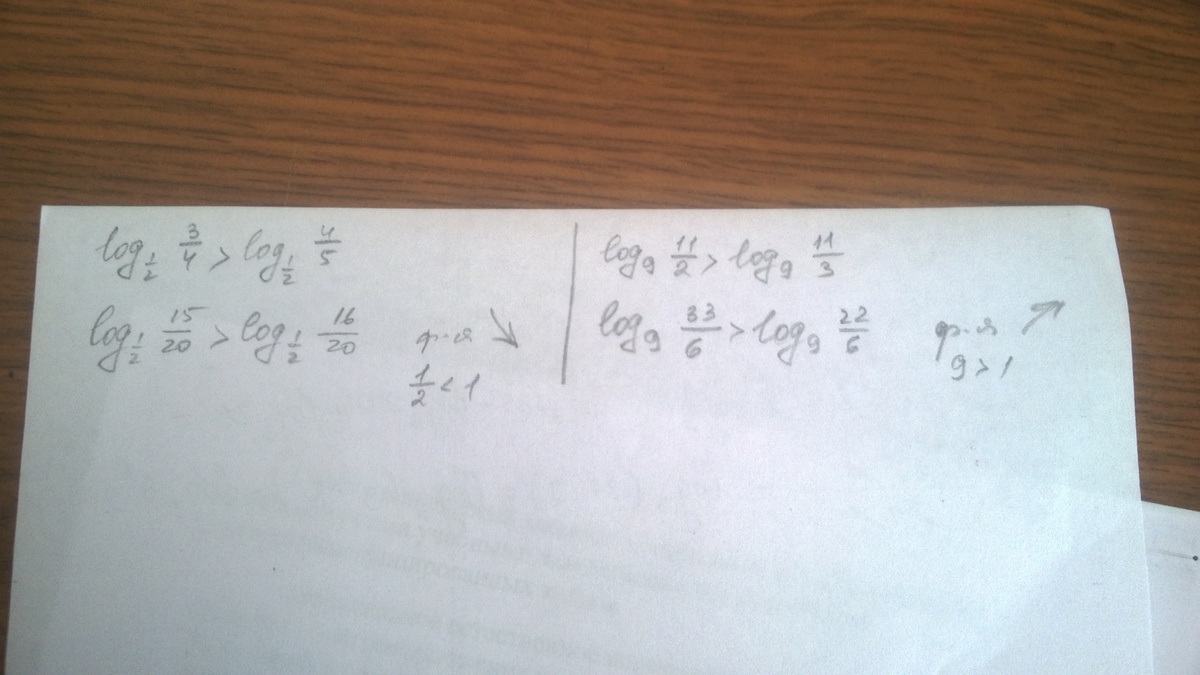 log_{1/2} 3/4 > log_{1/2} 4/5
log_{1/2} 15/20 > log_{1/2} 16/20 ф-я ↘
1/2 < 1
log_9 11/2 > log_9 11/3
log_9 33/6 > log_9 22/6 ф-я ↗
9 > 1